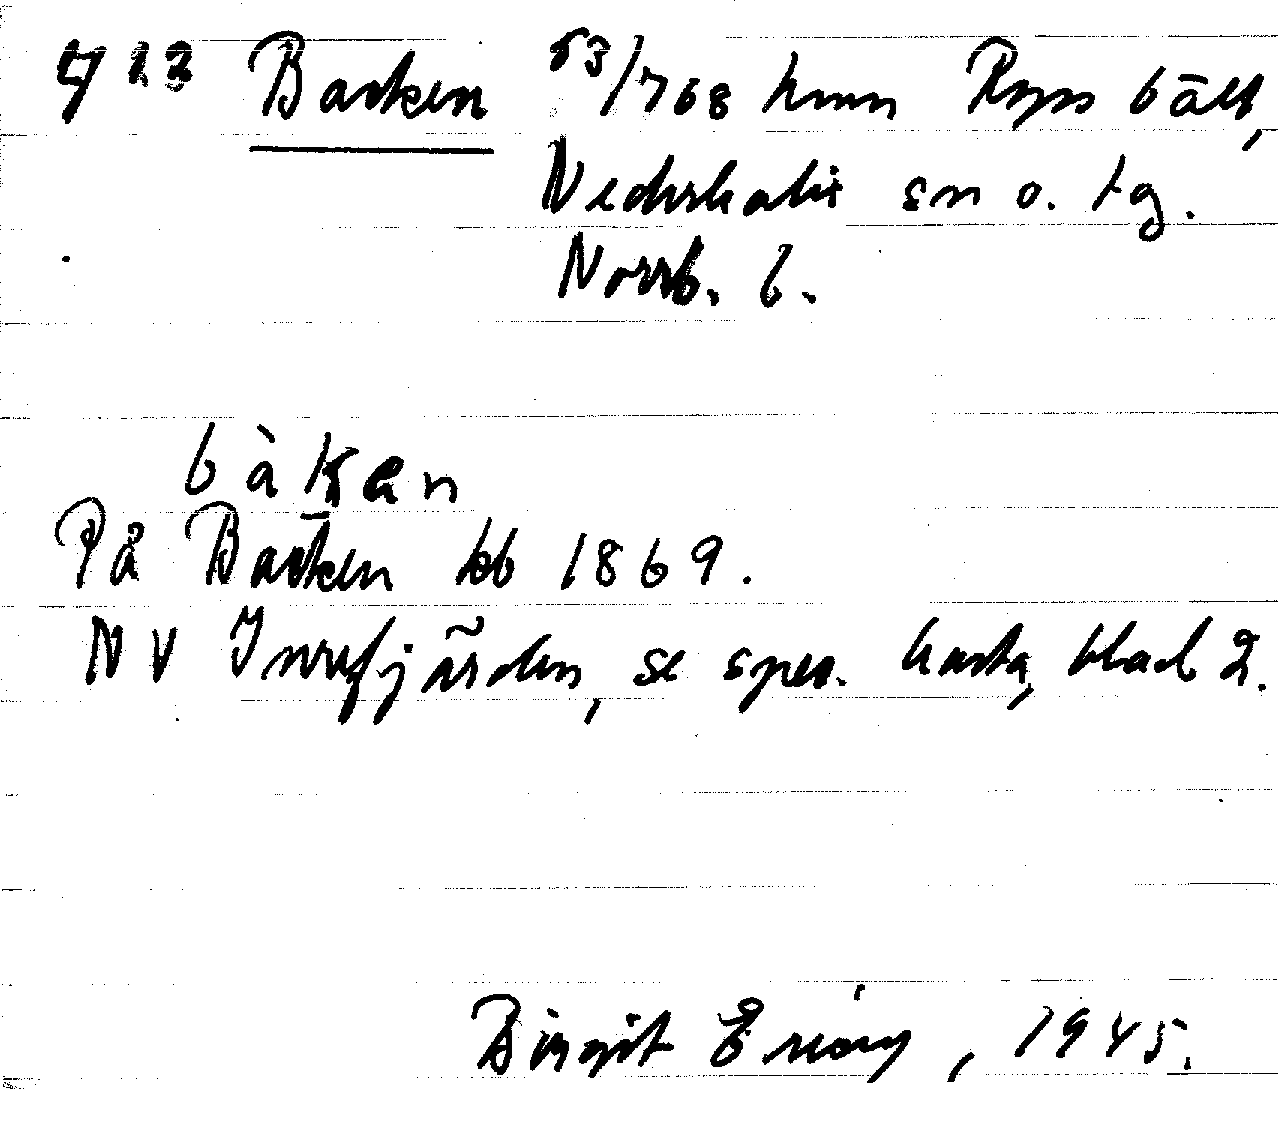 Backen 53/768 hmn Ryssbält,
Nederkalix sn o. tg.
Norrb. l.
bàkan
På Backen kb 1869.
NV Inrefjärden, se spec. karta, blad 2.
Birgit Ericny, 1945.